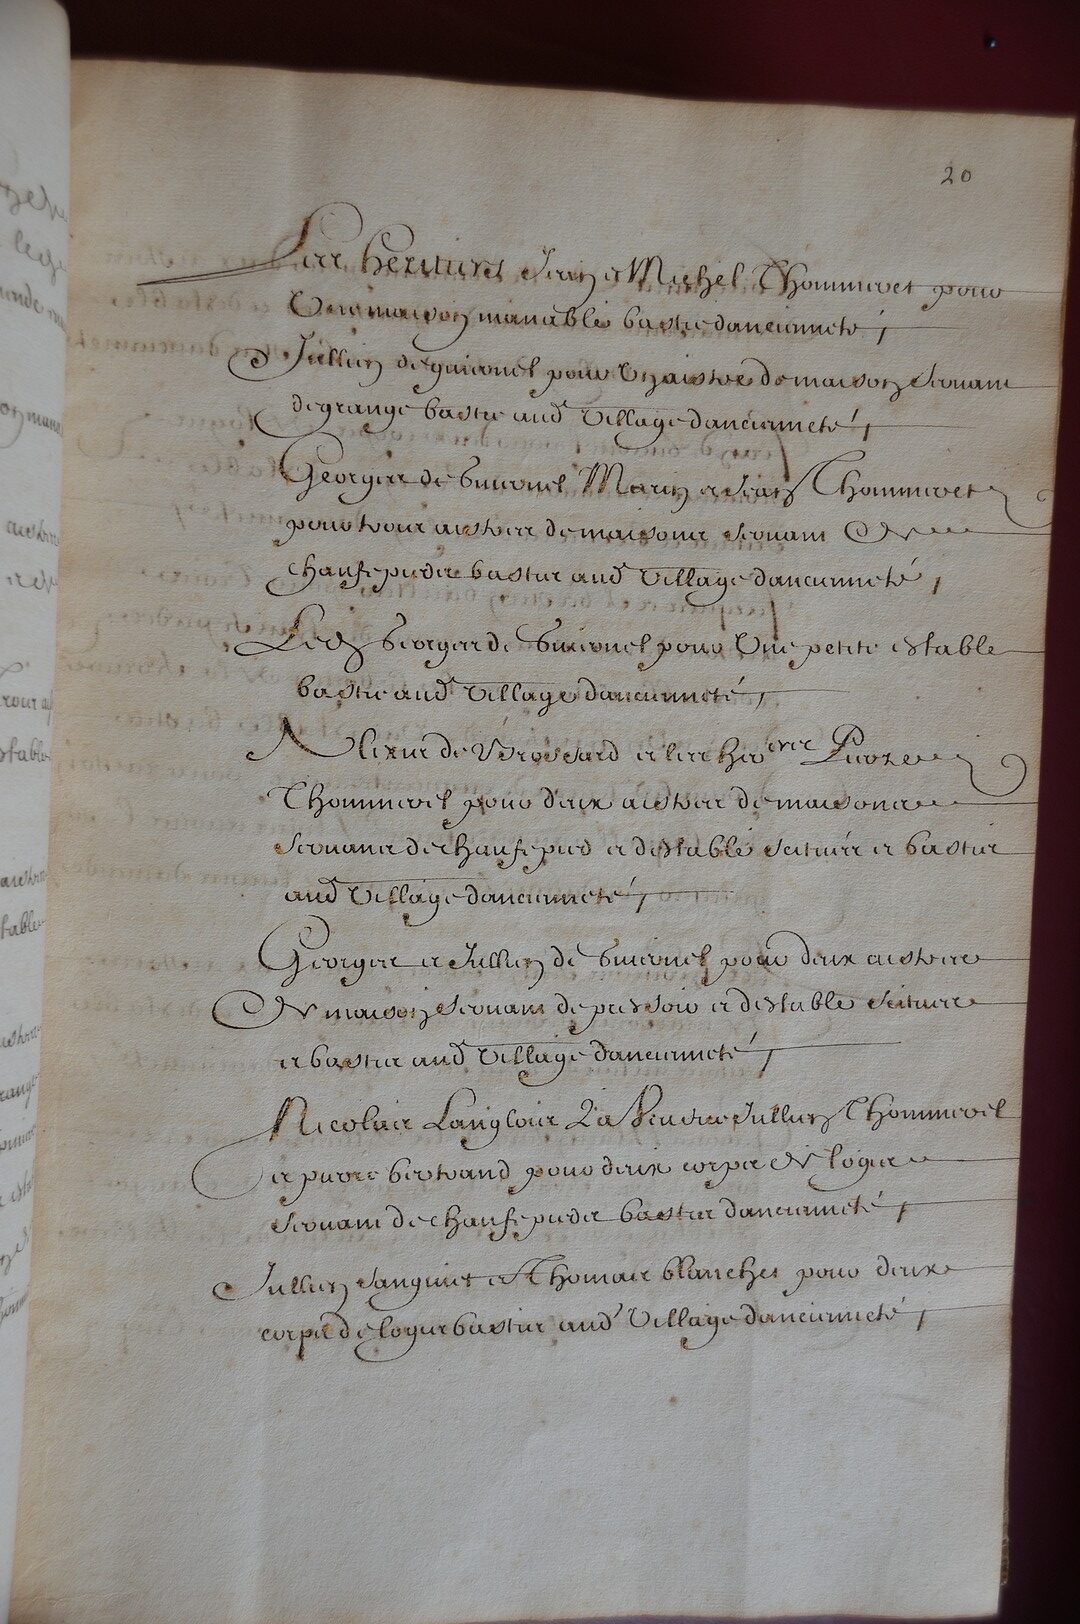 20
Les heritiers Jean et Michel Thommeret pour
Une maison manable bastie danciennete,
Jullien de guionel pour Un aistre de maison servant
de grange bastie aud Village danciennete,
Georges de Guionel Marin et Jean Thommeret
pour trois aistres de maisons servant de
chaufepieds bastis aud Village dancienneté,
Led Georges de Guionel pour Une petite estable
bastie aud Village dancienneté,
de Brossard et les her
Thommerel pour deux aistres de maisons
servans de chaufepied et destable scitués et bastis
aud Village dancienneté,
Georges et Jullien de Guionel pour deux aistres
de maison servans de pressoir et destable scitués
et bastis aud Village dancienneté,
Nicolas Langlois La Veufve Jullien Thommerel
et pierre bertrand pour deux corps de logis
servans de chaufepieds bastis dancienneté,
Jullien et Thomas blanches pour deux
corps de logis bastis aud Village dancienneté,